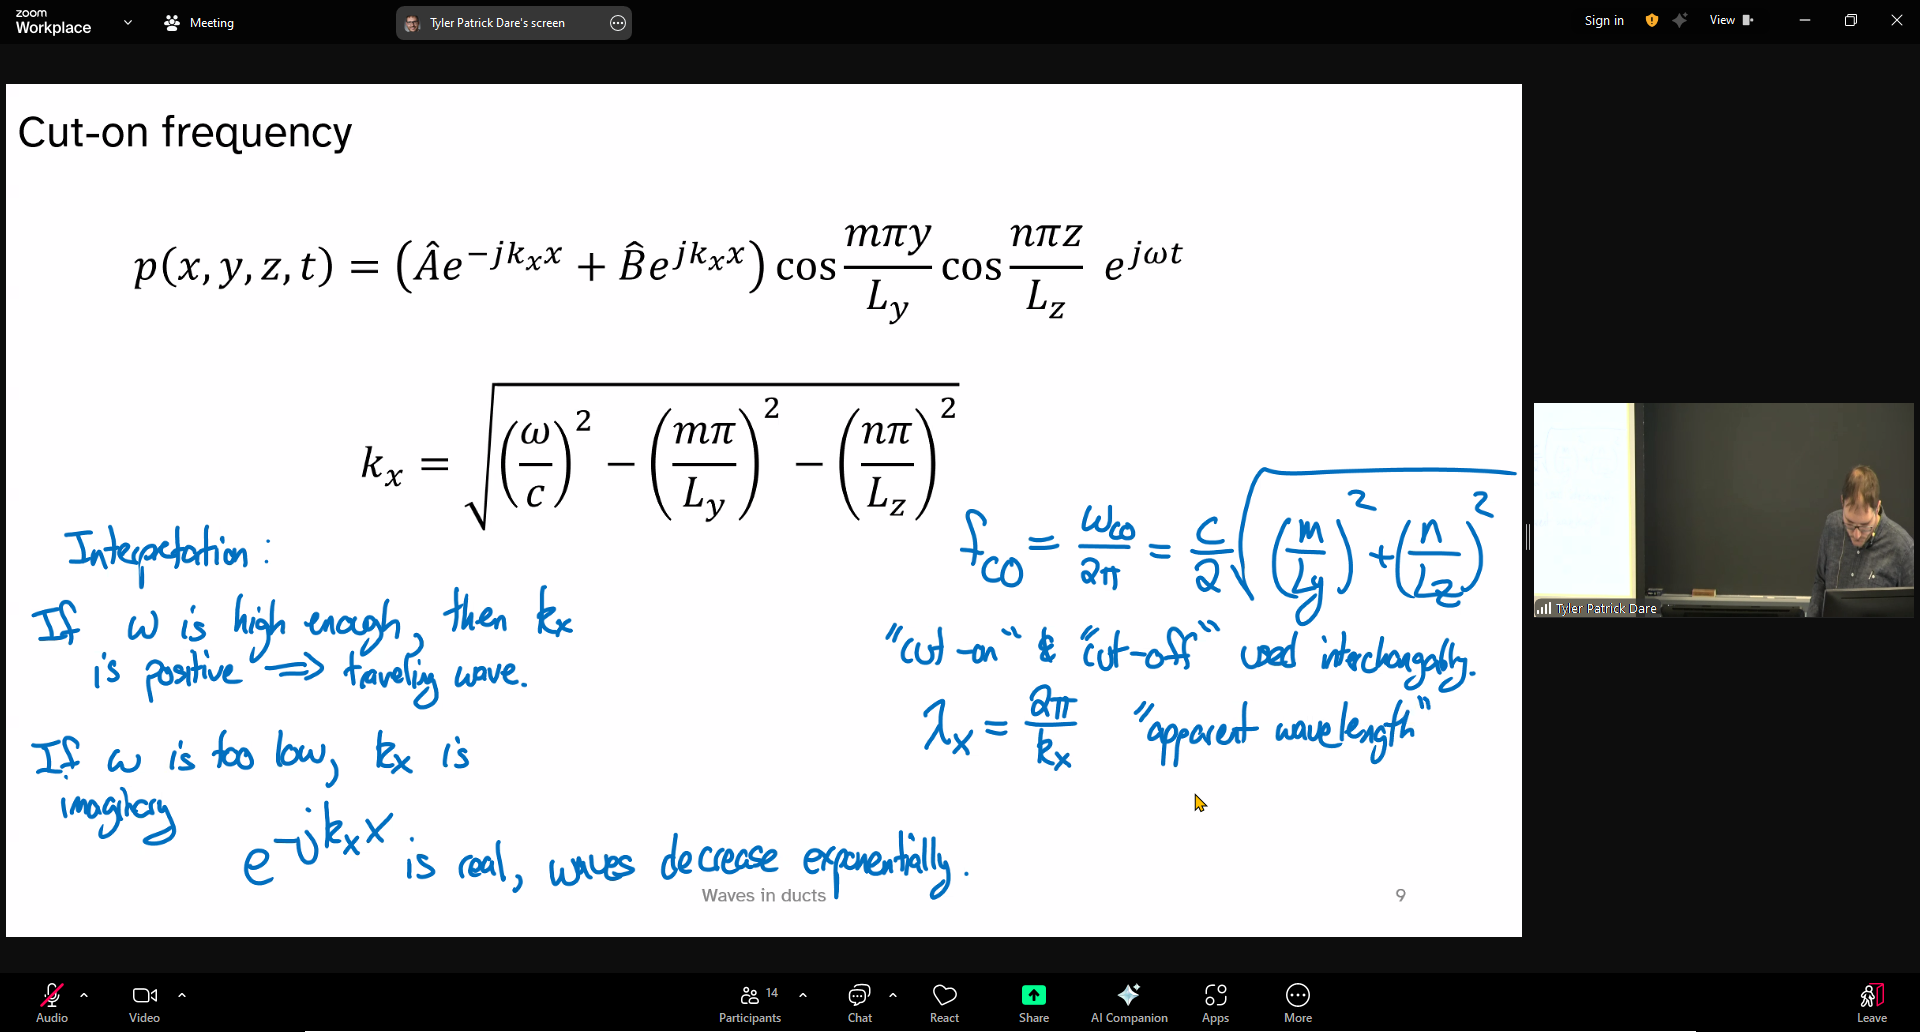 zoom
Workplace
Meeting
Tyler Patrick Dare's screen
Sign in
View
Cut-on frequency
p(x, y, z, t) = (Âe^{-jk_x x} + B̂e^{jk_x x}) cos \frac{mπy}{L_y} cos \frac{nπz}{L_z} e^{jωt}
k_x = \sqrt{(\frac{ω}{c})^2 − (\frac{mπ}{L_y})^2 − (\frac{nπ}{L_z})^2}
Interpretation:
If ω is high enough, then k_x
is positive ⟹ traveling wave.
If ω is too low, k_x is
imaginary
e^{-jk_x x} is real, waves decrease exponentially.
f_{CO} = \frac{ω_{co}}{2π} = \frac{c}{2} \sqrt{(\frac{m}{L_y})^2 + (\frac{n}{L_z})^2}
"cut-on" & "cut-off" used interchangably.
λ_x = \frac{2π}{k_x} "apparent wavelength"
Waves in ducts
9
Tyler Patrick Dare
Audio
Video
Participants
14
Chat
React
Share
AI Companion
Apps
More
Leave